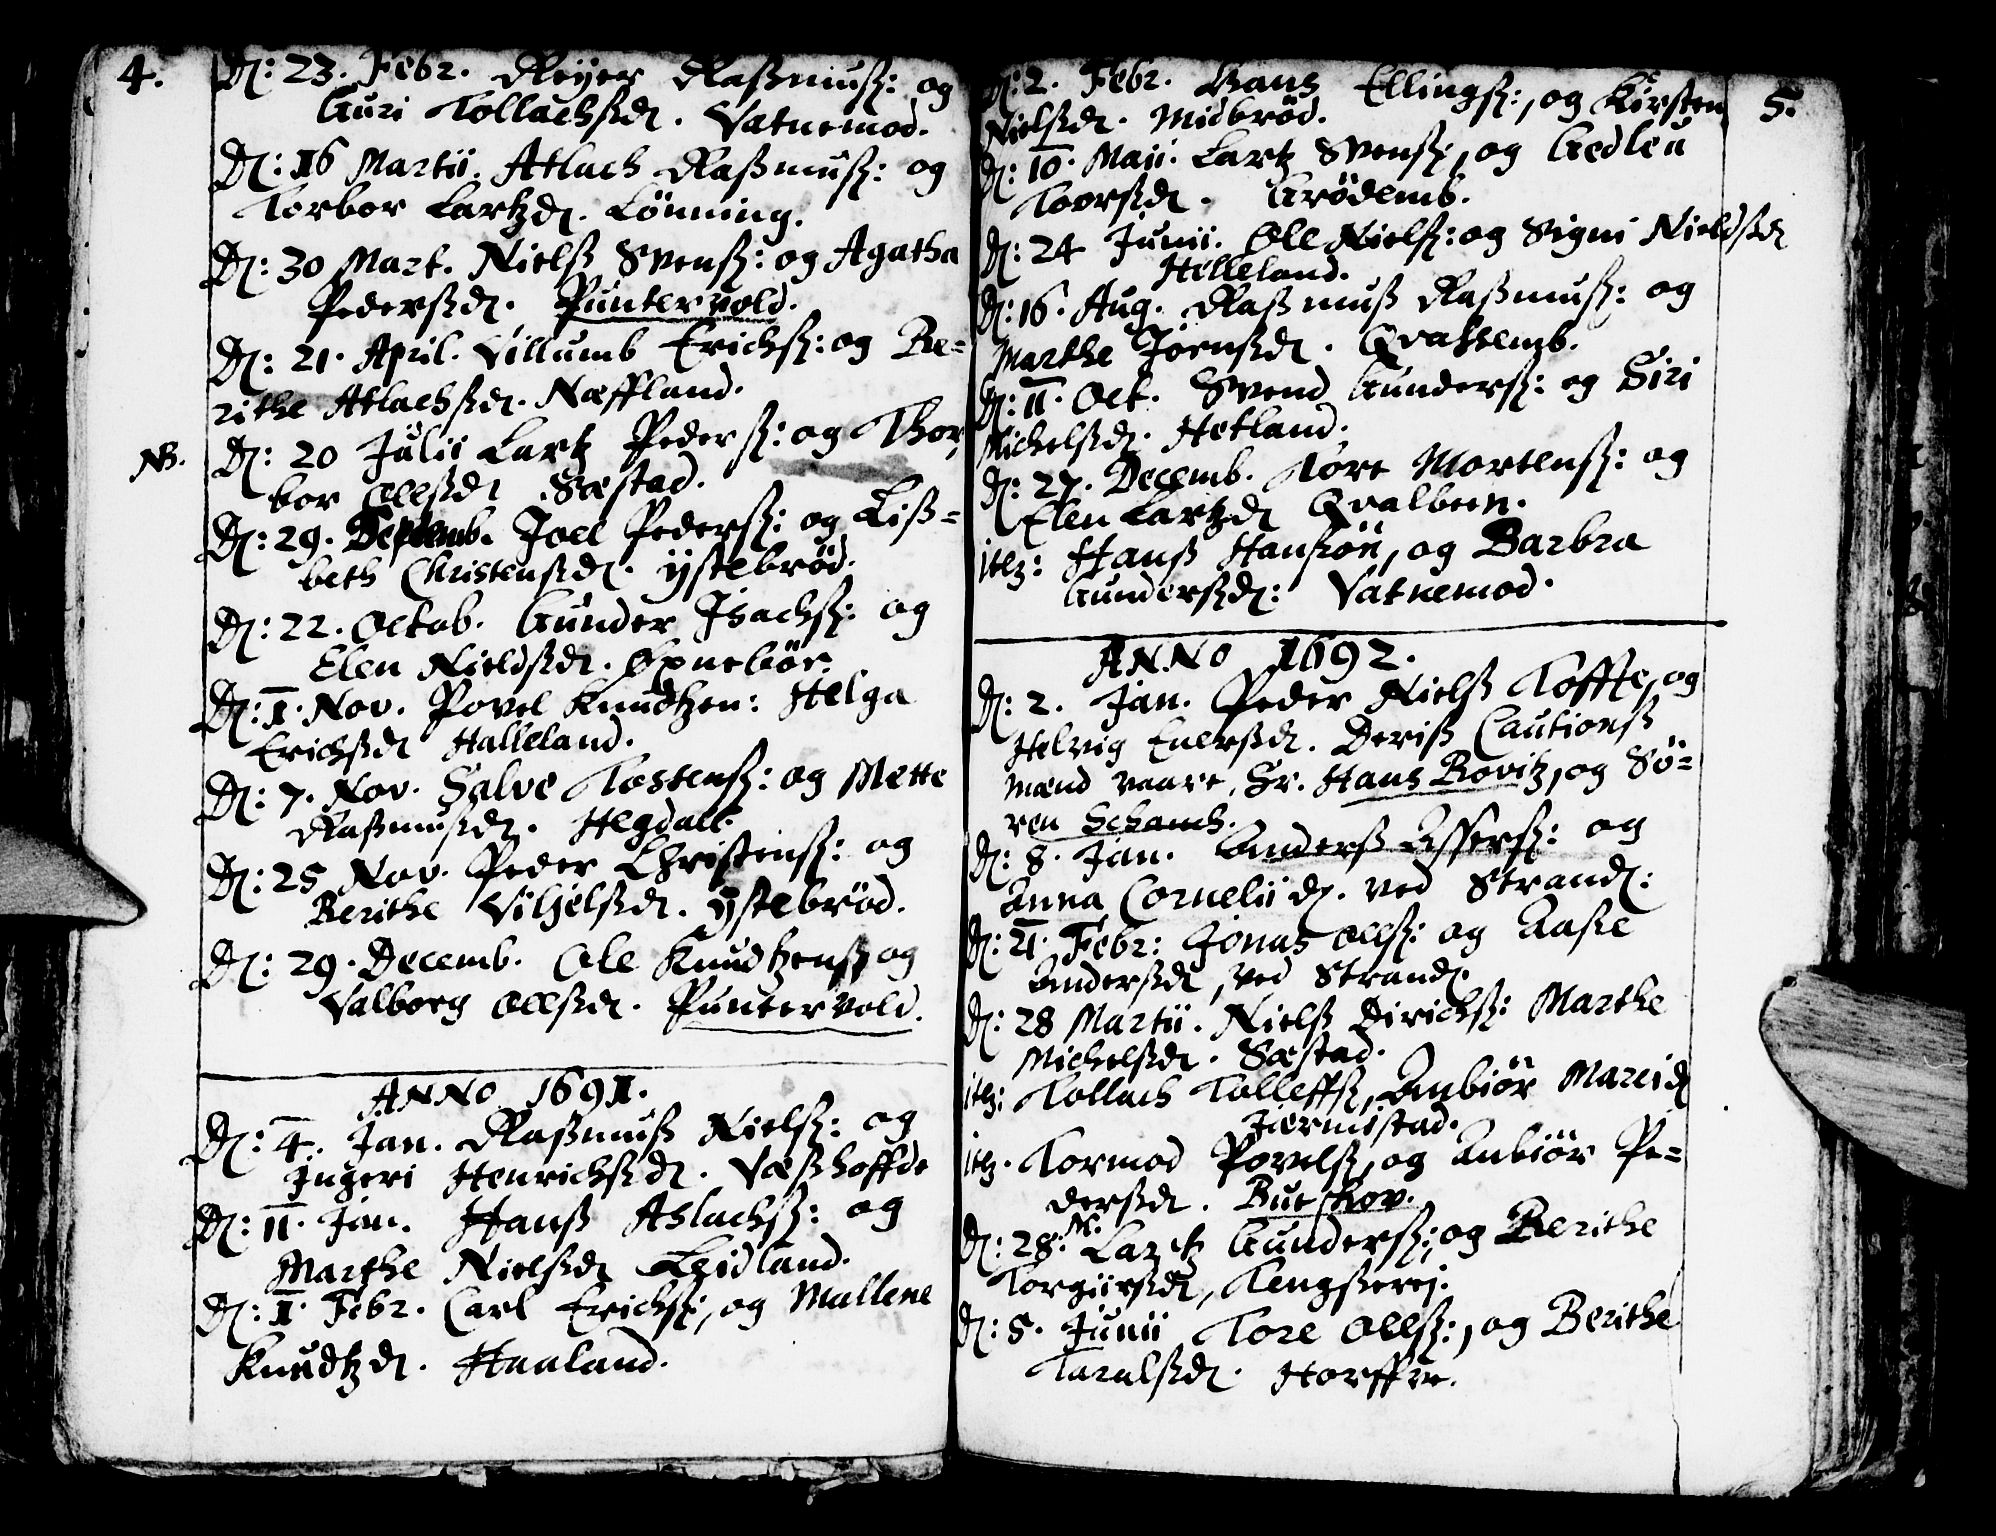 4.
D: 23. Febr. Reÿer Raßmusß: og
Guri Tollachsd. Vatnemod.
D: 16 Martii. Atlach Raßmusß: og
Torbor Lartzd. Lönning.
D: 30 Mart. Nielß Svensß: og Agatha
Pedersd. Puntervold.
D: 21. April. Villumb Erichsß: og Be-
rithe Atlachsd. Næffland.
NB. D: 20 Julii Lartz Pedersß: og Thor
bor Ollsd. Sæstad.
D: 29. Septemb. Joel Pedersß: og Liß=
beth Christensd. ÿstebröd.
D: 22. Octob. Gunder Isachsß: og
Elen Nieldsd. Øxnebör.
D: 1. Nov. Povel Knudtzen: Helga
Erichsd. Halleland.
D: 7. Nov. Salve Tostensß: og Mette
Raßmusd. Hegdall.
D: 25 Nov. Peder Christensß: og
Berithe Viljelsd. ÿstebröd.
D: 29. Decemb. Ole Knudtzensß og
Valborg Ollsd. Puntervold.
ANNO 1691.
D: 4. Jan. Raßmuß Nielsß: og
Ingeri Henrichsd. Væßhoffde
D: 11. Jan. Hanß Aslachsß: og
Marthe Nielsd. Lhidland.
D: 1. Febr. Carl Erichsß: og Mallene
Knudtzd. Haaland.
5.
D: 2. Febr. Hans Ellingsß:, og Kirsten
Nielsd. Midbröd.
D: 10. Maii. Lartz Svensß, og Gedleu
Torsd. Grödemb.
D: 24 Junii. Oll Nielsß: og Signi Nieldsd
Helleland.
D: 16. Aug. Raßmuß Raßmusß: og
Marthe Jörnsd. Qvassemb.
D: 11. Oct. Svend Gundersß: og Siri
Michelsd. Hetland.
D: 27. Decemb. Tore Mortensß: og
Elen Lartzd Qvalbeen.
itz: Hanß Hansön, og Barbra
Gundersd: Vatnemod.
ANNO 1692.
D: 2. Jan. Peder Nielß Toffte, og
Helvig Enersd. Deriß Cautionß
mænd vaare, Sr. Hans Bovitz, og Sö=
ren Schamb.
D: 8. Jan. Anderß Assersß: og
Anna Cornelii d. ved Strand:
D: 21. Febr: Jonas Ollsß: og Aasse
Andersd, ved Strand.
D: 28 Martii. Nielß Dirichsß: Marthe
Michelsd. Sæstad.
itz: Tollach Tolleffß, Anbiör Mareid
Jærmistad.
itz. Tormod Povelsß, og Anbiör Pe=
dersd. Bueskov.
D: 28. M. Lartz Gundersß:, og Berithe
Torgiirsd, Tengserej.
D: 5. Junii Tore Ollsß:, og Berithe
Taralsd. Horffve.